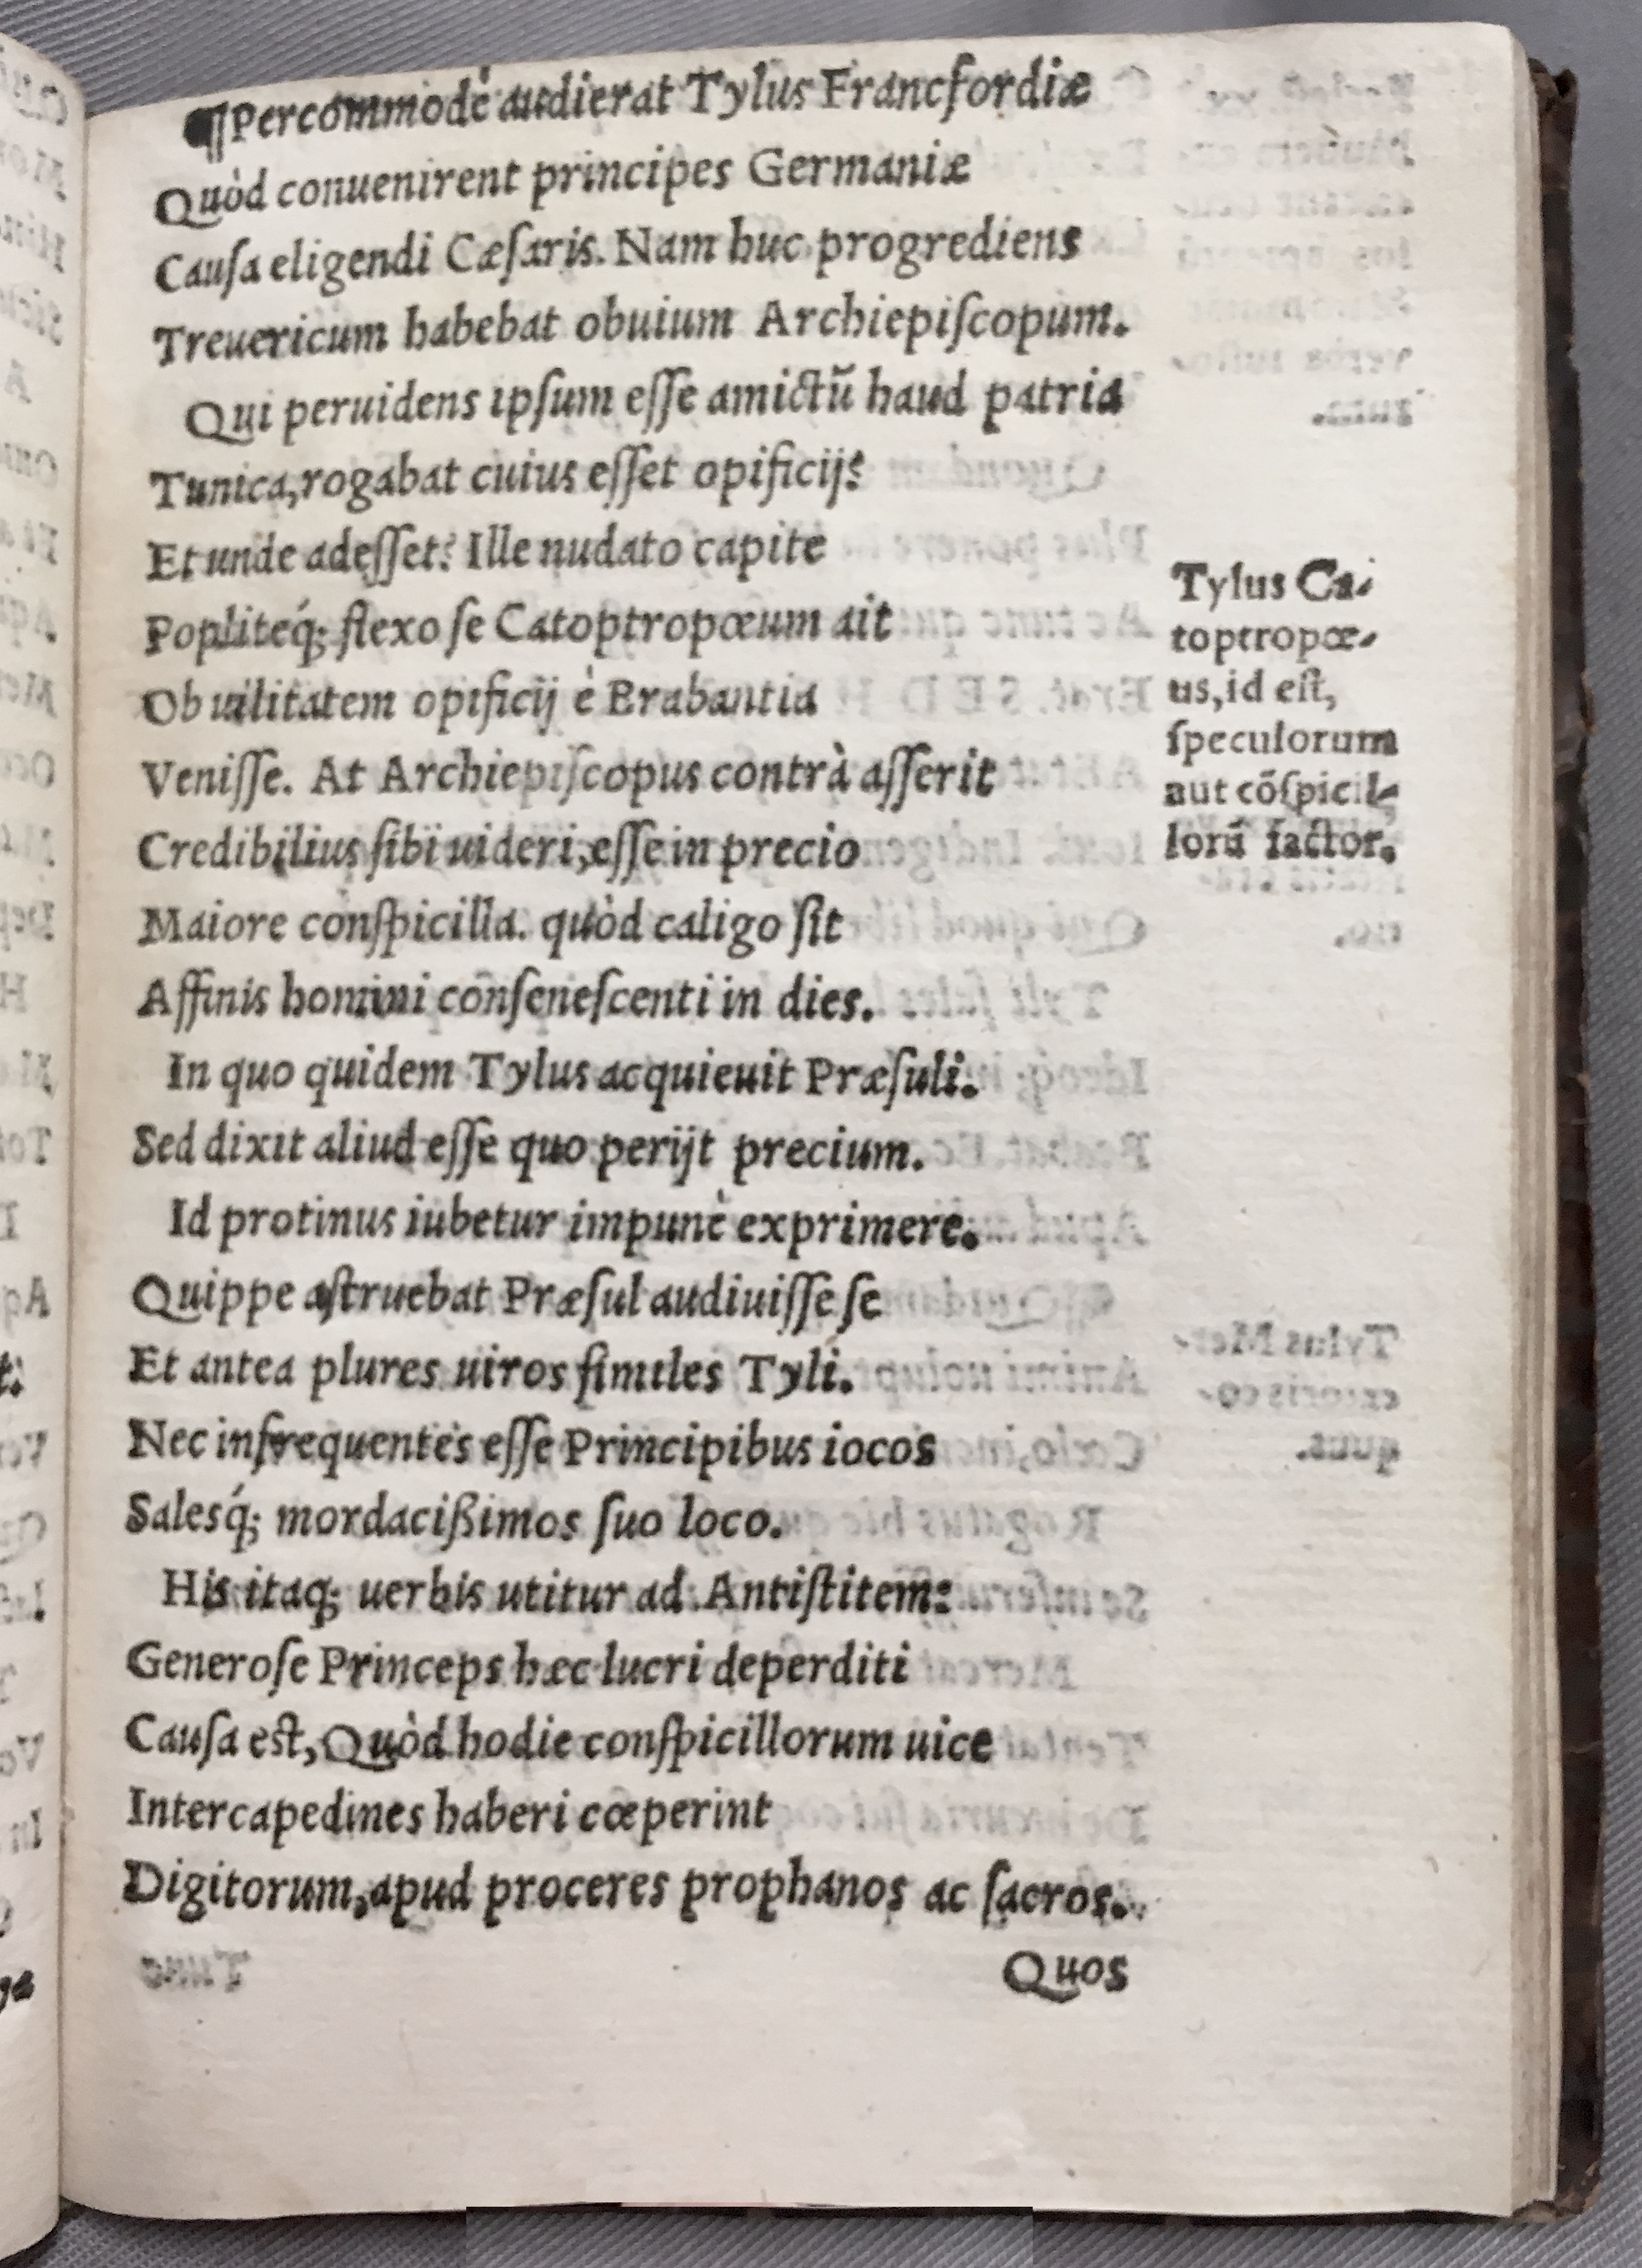 ¶Percommodè audierat Tylus Francfordiæ
Quòd conuenirent principes Germaniæ
Cauſa eligendi Cæſaris. Nam huc progrediens
Treuericum habebat obuium Archiepiſcopum.
Qui peruidens ipſum eſſe amictũ haud patria
Tunica, rogabat cuius eſſet opificij?
Et unde adeſſet? Ille nudato capite
Popliteq́; flexo ſe Catoptropœum ait
Ob uilitatem opificij è Brabantia
Veniſſe. At Archiepiſcopus contrà aſſerit
Credibilius ſibi uideri, eſſe in precio
Maiore conſpicilla. quòd caligo ſit
Affinis homini conſeneſcenti in dies.
In quo quidem Tylus acquieuit Præſuli.
Sed dixit aliud eſſe quo perijt precium.
Id protinus iubetur impunè exprimere.
Quippe aſtruebat Præſul audiuiſſe ſe
Et antea plures uiros ſimiles Tyli.
Nec infrequentes eſſe Principibus iocos
Salesq́; mordacißimos ſuo loco.
His itaq; uerbis utitur ad Antiſtitem:
Generoſe Princeps hæc lucri deperditi
Cauſa eſt, Quòd hodie conſpicillorum uice
Intercapedines haberi cœperint
Digitorum, apud proceres prophanos ac ſacros.
Quos
Tylus Ca-
toptropœ-
us, id eſt,
ſpeculorum
aut cõſpicil-
lorũ factor.